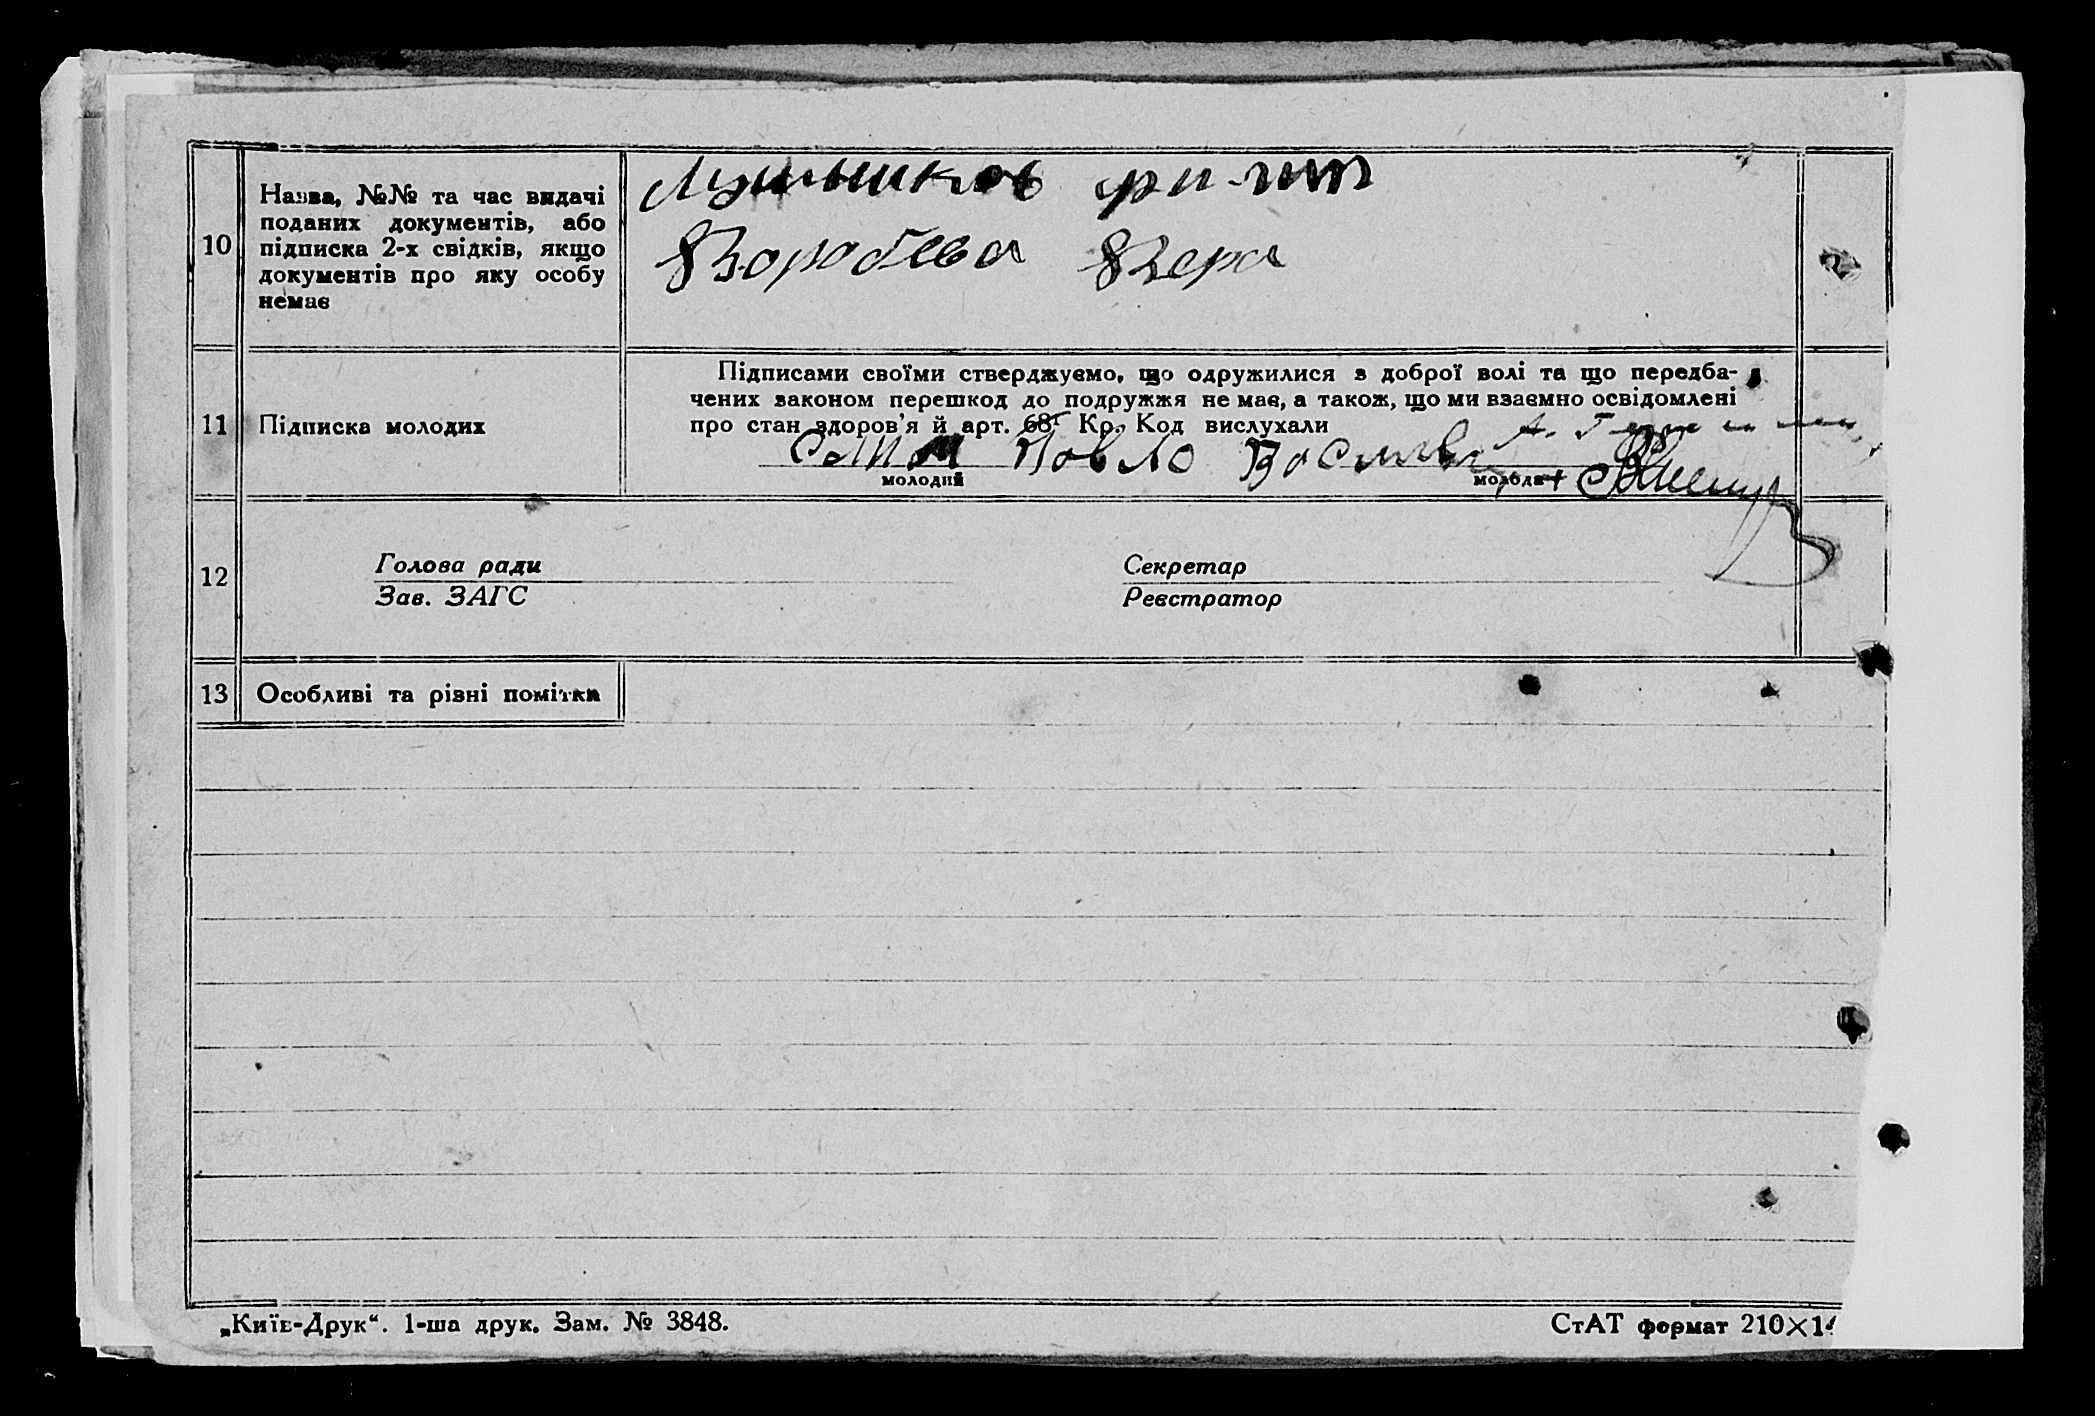 10
Назва, №№ та час видачі
поданих документів, або
підписка 2-х свідків, якщо
документів про яку особу
немає
Воробева Вера
11
Підписка молодих
Підписами своїми стверджуємо, що одружилися з доброї волі та що передба-
чених законом перешкод до подружжя не має, а також, що ми взаємно освідомлені
про стан здоров'я й арт. 68 Кр. Код вислухали
Павло
молодий
молода
12
Голова ради
Зав. ЗАГС
Секретар
Реєстратор
13
Особливі та рівні помітки
„Київ-Друк“. 1-ша друк. Зам. № 3848.
СтАТ формат 210×14